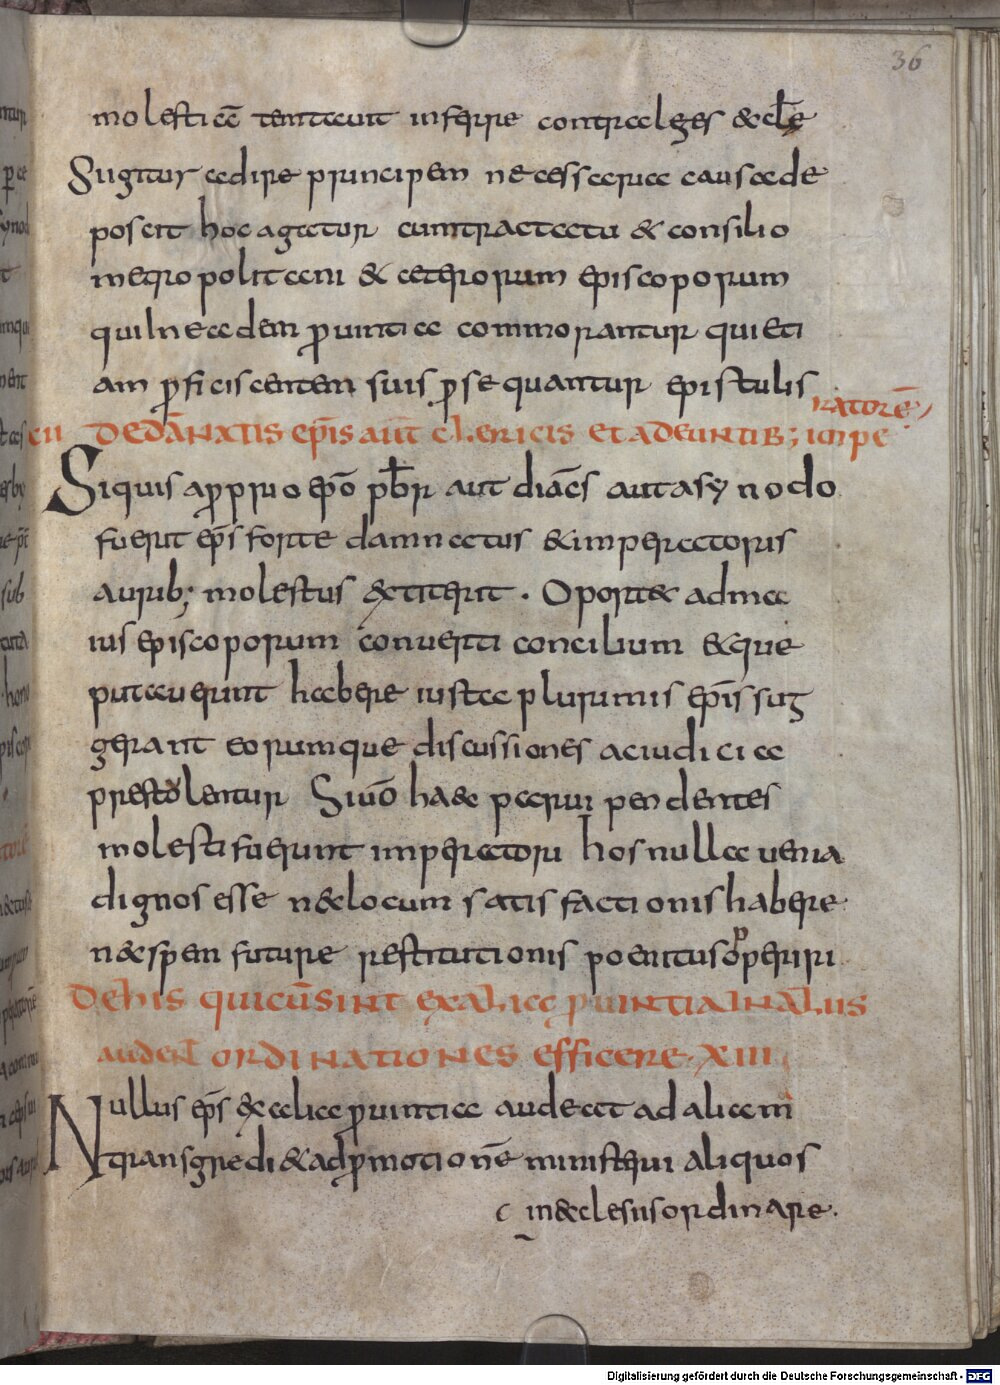 36
molestiā tentauit inferre contra leges & eclę
Si igitur adire principem necessaria causa de
poscit hoc agatur cum tractatu & consilio
metropolitani & ceterorum episcoporum
qui In eadem prouintia commorantur qui eti
am proficiscentem suis prosequantur epistulis
XII DE DĀNATIS ep̄is aūt clericis et adeuntib; impe
ratorē
Si quis a proprio ep̄o p̄br aut diac̄s aut a synodo
fuerit ep̄s forte damnatus & imperatoris
aurib; molestus extiterit. Oportet ad ma
ius episcoporum conuerti concilium & que
putauerint habere iusta plurimis ep̄is sug
gerant eorumque discussiones ac iudicia
prestolentur Si uō haec parui pendentes
molesti fuerint imperatori hos nulla uenia
dignos esse nec locum satisfactionis habere
nec spem future restitutionis poenitus operiri
p
De his qui cūsint ex alia prouintia In alius
audent ordinationes efficere. XIII
Nullus ep̄s ex alia prouintia audeat ad aliam
transgredi & ad promotionē ministerii aliquos
in eclesiis ordinare.
Digitalisierung gefördert durch die Deutsche Forschungsgemeinschaft - DFG